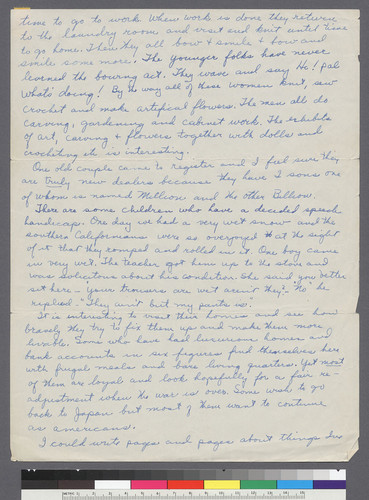 time to go to work. When work is done they return
to the laundry room and visit and knit until time
to go home. Then they all bow & smile & bow and
smile some more. The younger folks have never
learned the bowing act. They wave and say Hi! pal
Whats doing! By the way all of these women knit, sew
crochet and make artifical flowers. The men all do
carving, gardening and cabinet work. The exhibits
of art, carving & flowers together with dolls and
crocheting etc is interesting.
One old couple came to register and I feel sure they
are truly new dealers because they have 2 sons one
of whom is named Million and the other Billion.
There are some children who have a decided speech
handicap. One day we had a very wet snow and the
southern Californians were so overjoyed at the sight
of it that they romped and rolled in it. One boy came
in very wet. The teacher got him up to the stove and
was solicitous about his condition. She said you better
set here - "your trousers are wet aren't they"- "No" he
replied. "They ain't but my pants is."
It is interesting to visit their homes and see how
bravely they try to fix them up and make them more
livable. Some who have had luxurious homes and
bank accounts in six figures find themselves here
with frugal meals and bare living quarters. Yet most
of them are loyal and look hopefully for a fair re-
adjustment when the war is over. Some wish to go
back to Japan but most of them want to continue
as americans.
I could write pages and pages about things I've